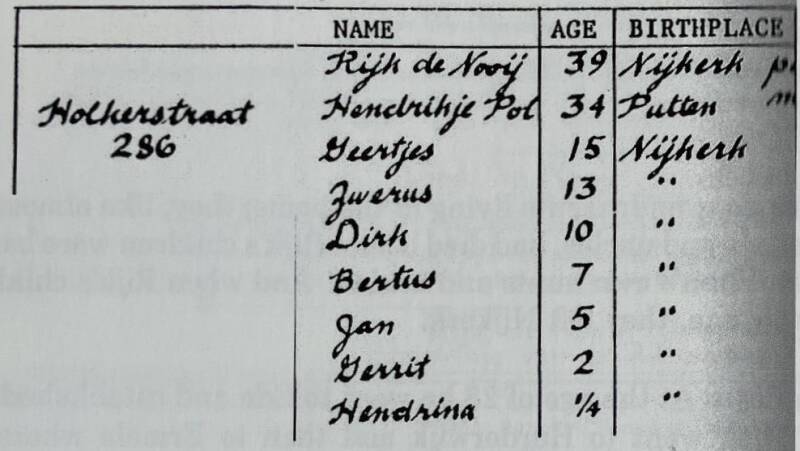 NAME AGE BIRTHPLACE
Rijk de Nooij 39 Nijkerk
Holkerstraat Hendrikje Pol 34 Putten
286 Geertjes 15 Nijkerk
Zwerus 13 "
Dirk 10 "
Bertus 7 "
Jan 5 "
Gerrit 2 "
Hendrina 1/4 "